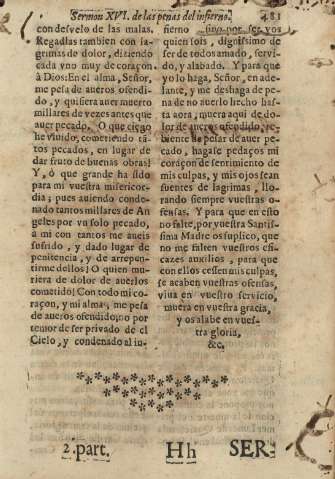 Sermon XVI. de las penas del infierno. 481
con desvelo de las malas.
Regadlas tambien con la-
grimas de dolor, diziendo
cada vno muy de coraçon
à Dios: En el alma, Señor,
me pesa de aueros ofendi-
do, y quisiera auer muerto
millares de vezes antes que
auer pecado. O que ciego
he viuido, cometiendo tã-
tos pecados, en lugar de
dar fruto de buenas obras!
Y, ó que grande ha sido
para mi vuestra misericor-
dia; pues auiendo conde-
nado tantos millares de An
geles por vn solo pecado,
à mi con tantos me aueis
sufrido, y dado lugar de
penitencia, y de arrepen-
tirme dellos! O quien mu-
riera de dolor de auerlos
cometido! Con todo mi co-
raçon, y mi alma, me pesa
de aueros ofendido; no por
temor de ser privado de el
Cielo, y condenado al in-
fierno sino por ser vos
quien sois, dignissimo de
ser de todos amado, servi-
do, y alabado. Y para que
yo lo haga, Señor, en ade-
lante, y me deshaga de pe-
na de no auerlo hecho has-
ta aora, muera aqui de do-
lor de aueros ofendido, re-
biente de pesar de auer pe-
cado, hagase pedaços mi
coraçon de sentimiento de
mis culpas, y mis ojos sean
fuentes de lagrimas, llo-
rando siempre vuestras o-
fensas. Y para que en esto
no falte, por vuestra Santis-
sima Madre os suplico, que
no me falten vuestros efi-
cazes auxilios, para que
con ellos cessen mis culpas,
se acaben vuestras ofensas,
viua en vuestro servicio,
muera en vuestra gracia,
y os alabe en vues-
tra gloria,
&c.
2. part. Hh SER-